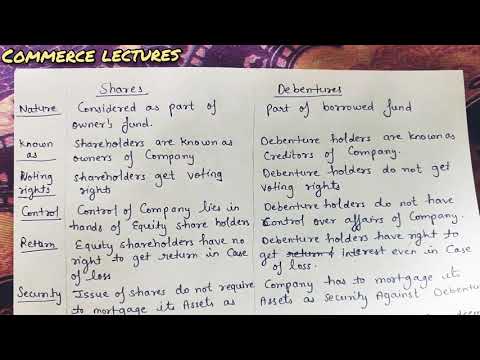 COMMERCE LECTURES
Shares Debentures
Nature Considered as part of Part of borrowed fund
owner's fund.
Known Shareholders are known as Debenture holders are known as
as owners of Company Creditors of Company.
Voting Shareholders get voting Debenture holders do not get
rights right voting rights
Control Control of Company lies in Debenture holders do not have
hands of Equity share holders Control over affairs of Company.
Return Equity shareholders have no Debenture holders have right to
right to get return in Case get return interest even in Case
of loss of loss.
Security Issue of shares do not require Company has to mortgage its
to mortgage its Assets as Assets as security Against Debentu